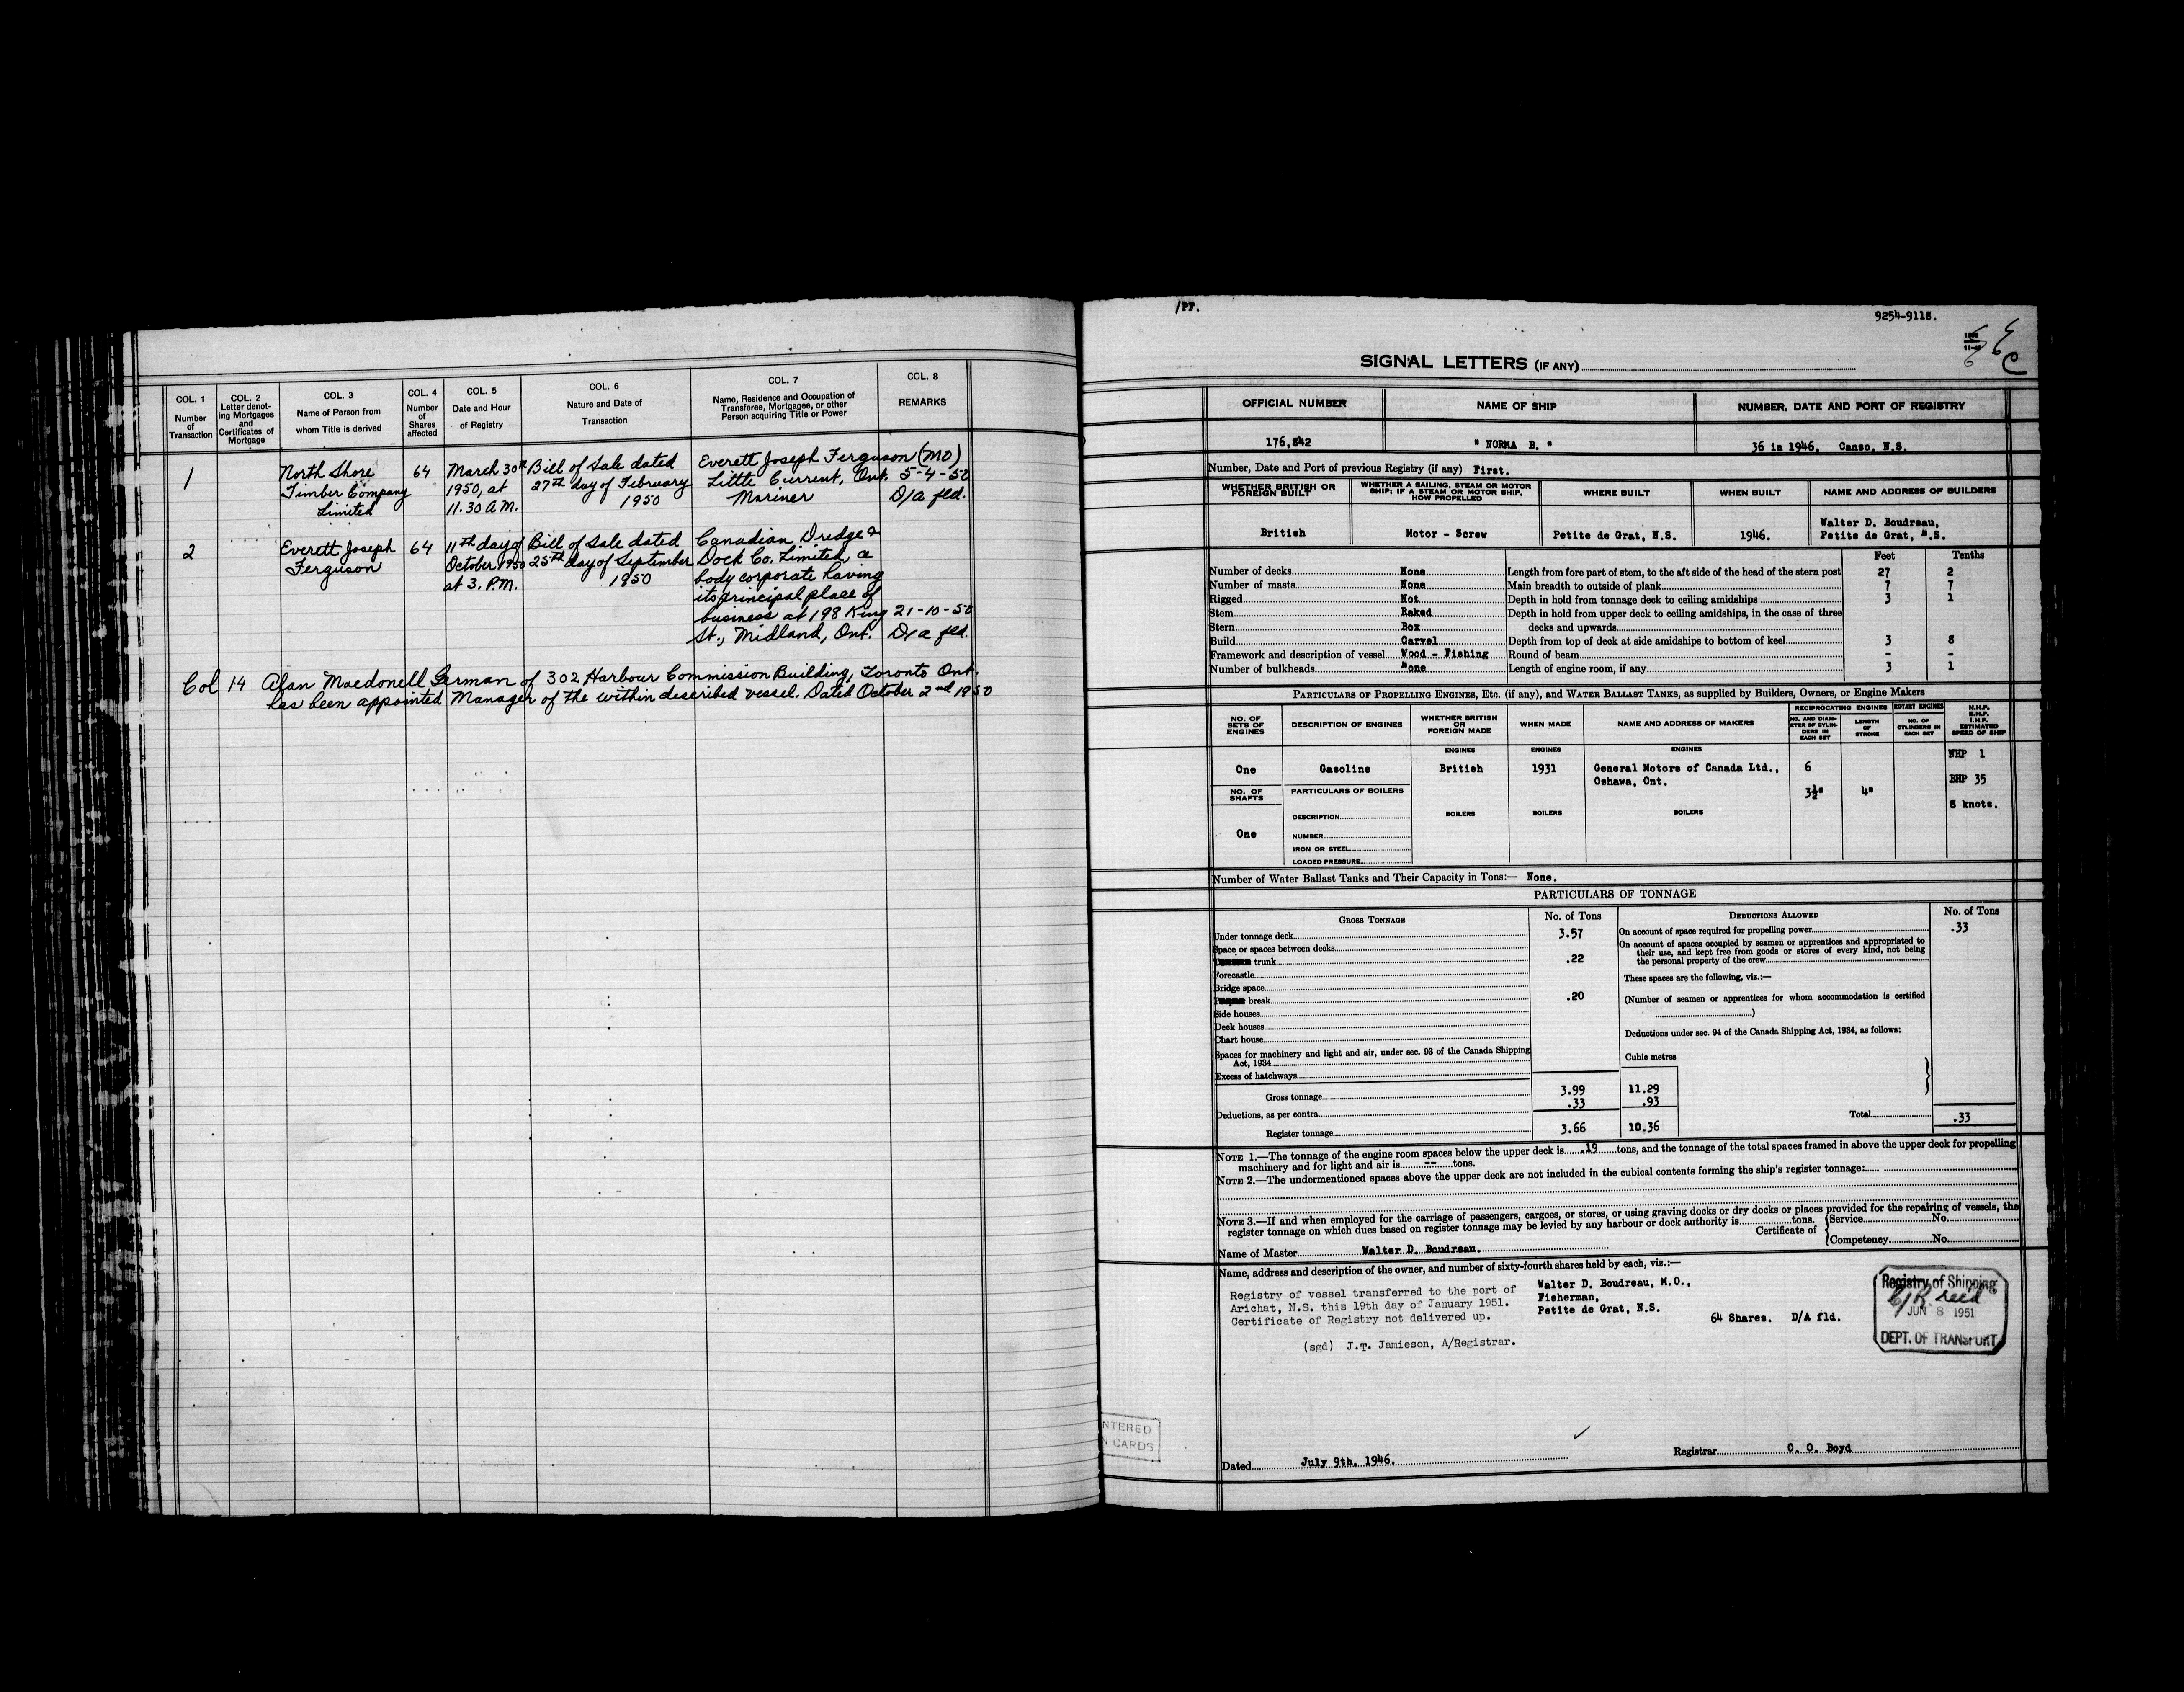 COL. 1 COL. 2 COL. 3 COL. 4 COL. 5 COL. 6 COL. 7 COL. 8
Number of Transaction
Letter denoting Mortgages and Certificates of Mortgage
Name of Person from whom Title is derived
Number of Shares affected
Date and Hour of Registry
Nature and Date of Transaction
Name, Residence and Occupation of Transferee, Mortgagee, or other Person acquiring Title or Power
REMARKS
1
North Shore
Timber Company
Limited
64
March 30th
1950, at
11.30 A.M.
Bill of Sale dated
27th day of February
1950
Everett Joseph Ferguson (MO)
Little Current, Ont.
Mariner
5-4-50
D/a fld.
2
Everett Joseph
Ferguson
64
11th day of
October 1950
at 3. P.M.
Bill of Sale dated
25th day of September
1950
Canadian Dredge &
Dock Co. Limited, a
body corporate having
its principal place of
business at 198 King
St., Midland, Ont.
21-10-50
D/a fld.
Col 14 Alan Macdonell German of 302 Harbour Commission Building, Toronto Ont.
has been appointed Manager of the within described vessel. Dated October 2nd 1950
/PP.
9254-9118.
SIGNAL LETTERS (IF ANY)
OFFICIAL NUMBER NAME OF SHIP NUMBER, DATE AND PORT OF REGISTRY
176,842 " NORMA B. " 36 in 1946, Canso, N.S.
Number, Date and Port of previous Registry (if any) First.
WHETHER BRITISH OR FOREIGN BUILT
WHETHER A SAILING, STEAM OR MOTOR SHIP; IF A STEAM OR MOTOR SHIP, HOW PROPELLED
WHERE BUILT WHEN BUILT NAME AND ADDRESS OF BUILDERS
British Motor - Screw Petite de Grat, N.S. 1946.
Walter D. Boudreau,
Petite de Grat, N.S.
Feet Tenths
Number of decks None Length from fore part of stem, to the aft side of the head of the stern post 27 2
Number of masts None Main breadth to outside of plank 7 7
Rigged Not Depth in hold from tonnage deck to ceiling amidships 3 1
Stem Raked Depth in hold from upper deck to ceiling amidships, in the case of three
Stern Box decks and upwards
Build Carvel Depth from top of deck at side amidships to bottom of keel 3 8
Framework and description of vessel Wood - Fishing Round of beam - -
Number of bulkheads None Length of engine room, if any 3 1
PARTICULARS OF PROPELLING ENGINES, ETC. (if any), and WATER BALLAST TANKS, as supplied by Builders, Owners, or Engine Makers
NO. OF SETS OF ENGINES
DESCRIPTION OF ENGINES
WHETHER BRITISH OR FOREIGN MADE
WHEN MADE
NAME AND ADDRESS OF MAKERS
RECIPROCATING ENGINES ROTARY ENGINES
NO. AND DIAMETER OF CYLINDERS IN EACH SET
LENGTH OF STROKE
NO. OF CYLINDERS IN EACH SET
N.H.P. B.H.P. I.H.P. ESTIMATED SPEED OF SHIP
ENGINES ENGINES ENGINES
One Gasoline British 1931 General Motors of Canada Ltd., 6
Oshawa, Ont.
3½" 4"
NHP 1
BHP 35
8 knots.
NO. OF SHAFTS
PARTICULARS OF BOILERS
BOILERS BOILERS BOILERS
DESCRIPTION
One
NUMBER
IRON OR STEEL
LOADED PRESSURE
Number of Water Ballast Tanks and Their Capacity in Tons:— None.
PARTICULARS OF TONNAGE
GROSS TONNAGE No. of Tons DEDUCTIONS ALLOWED No. of Tons
Under tonnage deck 3.57
Space or spaces between decks
trunk .22
Forecastle
Bridge space
break .20
Side houses
Deck houses
Chart house
Spaces for machinery and light and air, under sec. 93 of the Canada Shipping
Act, 1934
Excess of hatchways
Gross tonnage 3.99 11.29
Deductions, as per contra .33 .93
Register tonnage 3.66 10.36
On account of space required for propelling power .33
On account of spaces occupied by seamen or apprentices and appropriated to
their use, and kept free from goods or stores of every kind, not being
the personal property of the crew
These spaces are the following, viz.:—
(Number of seamen or apprentices for whom accommodation is certified
)
Deductions under sec. 94 of the Canada Shipping Act, 1934, as follows:
Cubic metres
Total .33
NOTE 1.—The tonnage of the engine room spaces below the upper deck is .19 tons, and the tonnage of the total spaces framed in above the upper deck for propelling
machinery and for light and air is -- tons.
NOTE 2.—The undermentioned spaces above the upper deck are not included in the cubical contents forming the ship's register tonnage:
NOTE 3.—If and when employed for the carriage of passengers, cargoes, or stores, or using graving docks or dry docks or places provided for the repairing of vessels, the
register tonnage on which dues based on register tonnage may be levied by any harbour or dock authority is tons.
Certificate of
Service No.
Competency No.
Name of Master Walter D. Boudreau.
Name, address and description of the owner, and number of sixty-fourth shares held by each, viz.:—
Registry of vessel transferred to the port of
Arichat, N.S. this 19th day of January 1951.
Certificate of Registry not delivered up.
(sgd) J.T. Jamieson, A/Registrar.
Walter D. Boudreau, M.O.,
Fisherman,
Petite de Grat, N.S.
64 Shares. D/A fld.
Registry of Shipping
JUN 8 1951
DEPT. OF TRANSPORT
NTERED
N CARDS
Dated July 9th, 1946.
Registrar C. O. Boyd